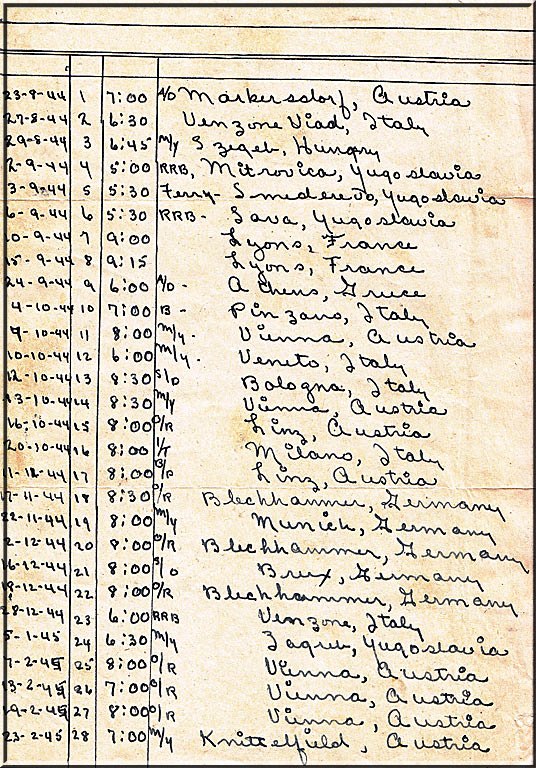 23-8-44 1 7:00 A/D Markersdorf, Austria
27-8-44 2 6:30 Venzone Viad, Italy
29-8-44 3 6:45 M/Y Szegeb, Hungry
2-9-44 4 5:00 RRB, Mitrovica, Yugoslavia
3-9-44 5 5:30 Ferry- Smederevo, Yugoslavia
6-9-44 6 5:30 RRB- Sava, Yugoslavia
10-9-44 7 9:00 Lyons, France
15-9-44 8 9:15 Lyons, France
24-9-44 9 6:00 A/D- Athens, Greece
4-10-44 10 7:00 B- Pinzano, Italy
7-10-44 11 8:00 M/Y- Vienna, Austria
10-10-44 12 6:00 M/Y- Veneto, Italy
12-10-44 13 8:30 S/D Bologna, Italy
13-10-44 14 8:30 M/Y Vienna, Austria
16-10-44 15 8:00 O/R Linz, Austria
20-10-44 16 8:00 Milano, Italy
17 8:00 Linz, Austria
17-11-44 18 8:30 O/R Blechhammer, Germany
22-11-44 19 8:00 M/Y Munich, Germany
2-12-44 20 8:00 O/R Blechhammer, Germany
16-12-44 21 8:00 Brux, Germany
19-12-44 22 8:00 O/R Blechhammer, Germany
28-12-44 23 6:00 RRB Venzone, Italy
5-1-45 24 6:30 M/Y Zagreb, Yugoslavia
7-2-45 25 8:00 O/R Vienna, Austria
13-2-45 26 7:00 O/R Vienna, Austria
19-2-45 27 8:00 O/R Vienna, Austria
23-2-45 28 7:00 M/Y Knittelfield, Austria